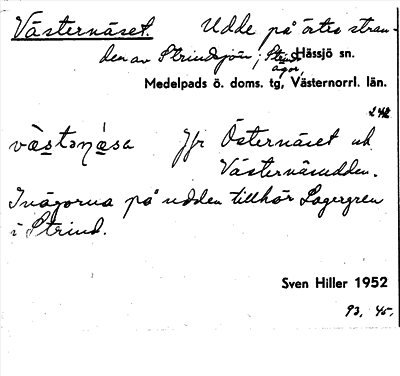 Västernäset. Udde på östra stran-
den av Strindsjön; Strinds ägor, Hässjö sn.
Medelpads ö. doms. tg, Västernorrl. län.
242
Jfr Östernäset och
Västernäsudden.
Inägorna på udden tillhör Lagergren
i Strind.
Sven Hiller 1952
93. 45.